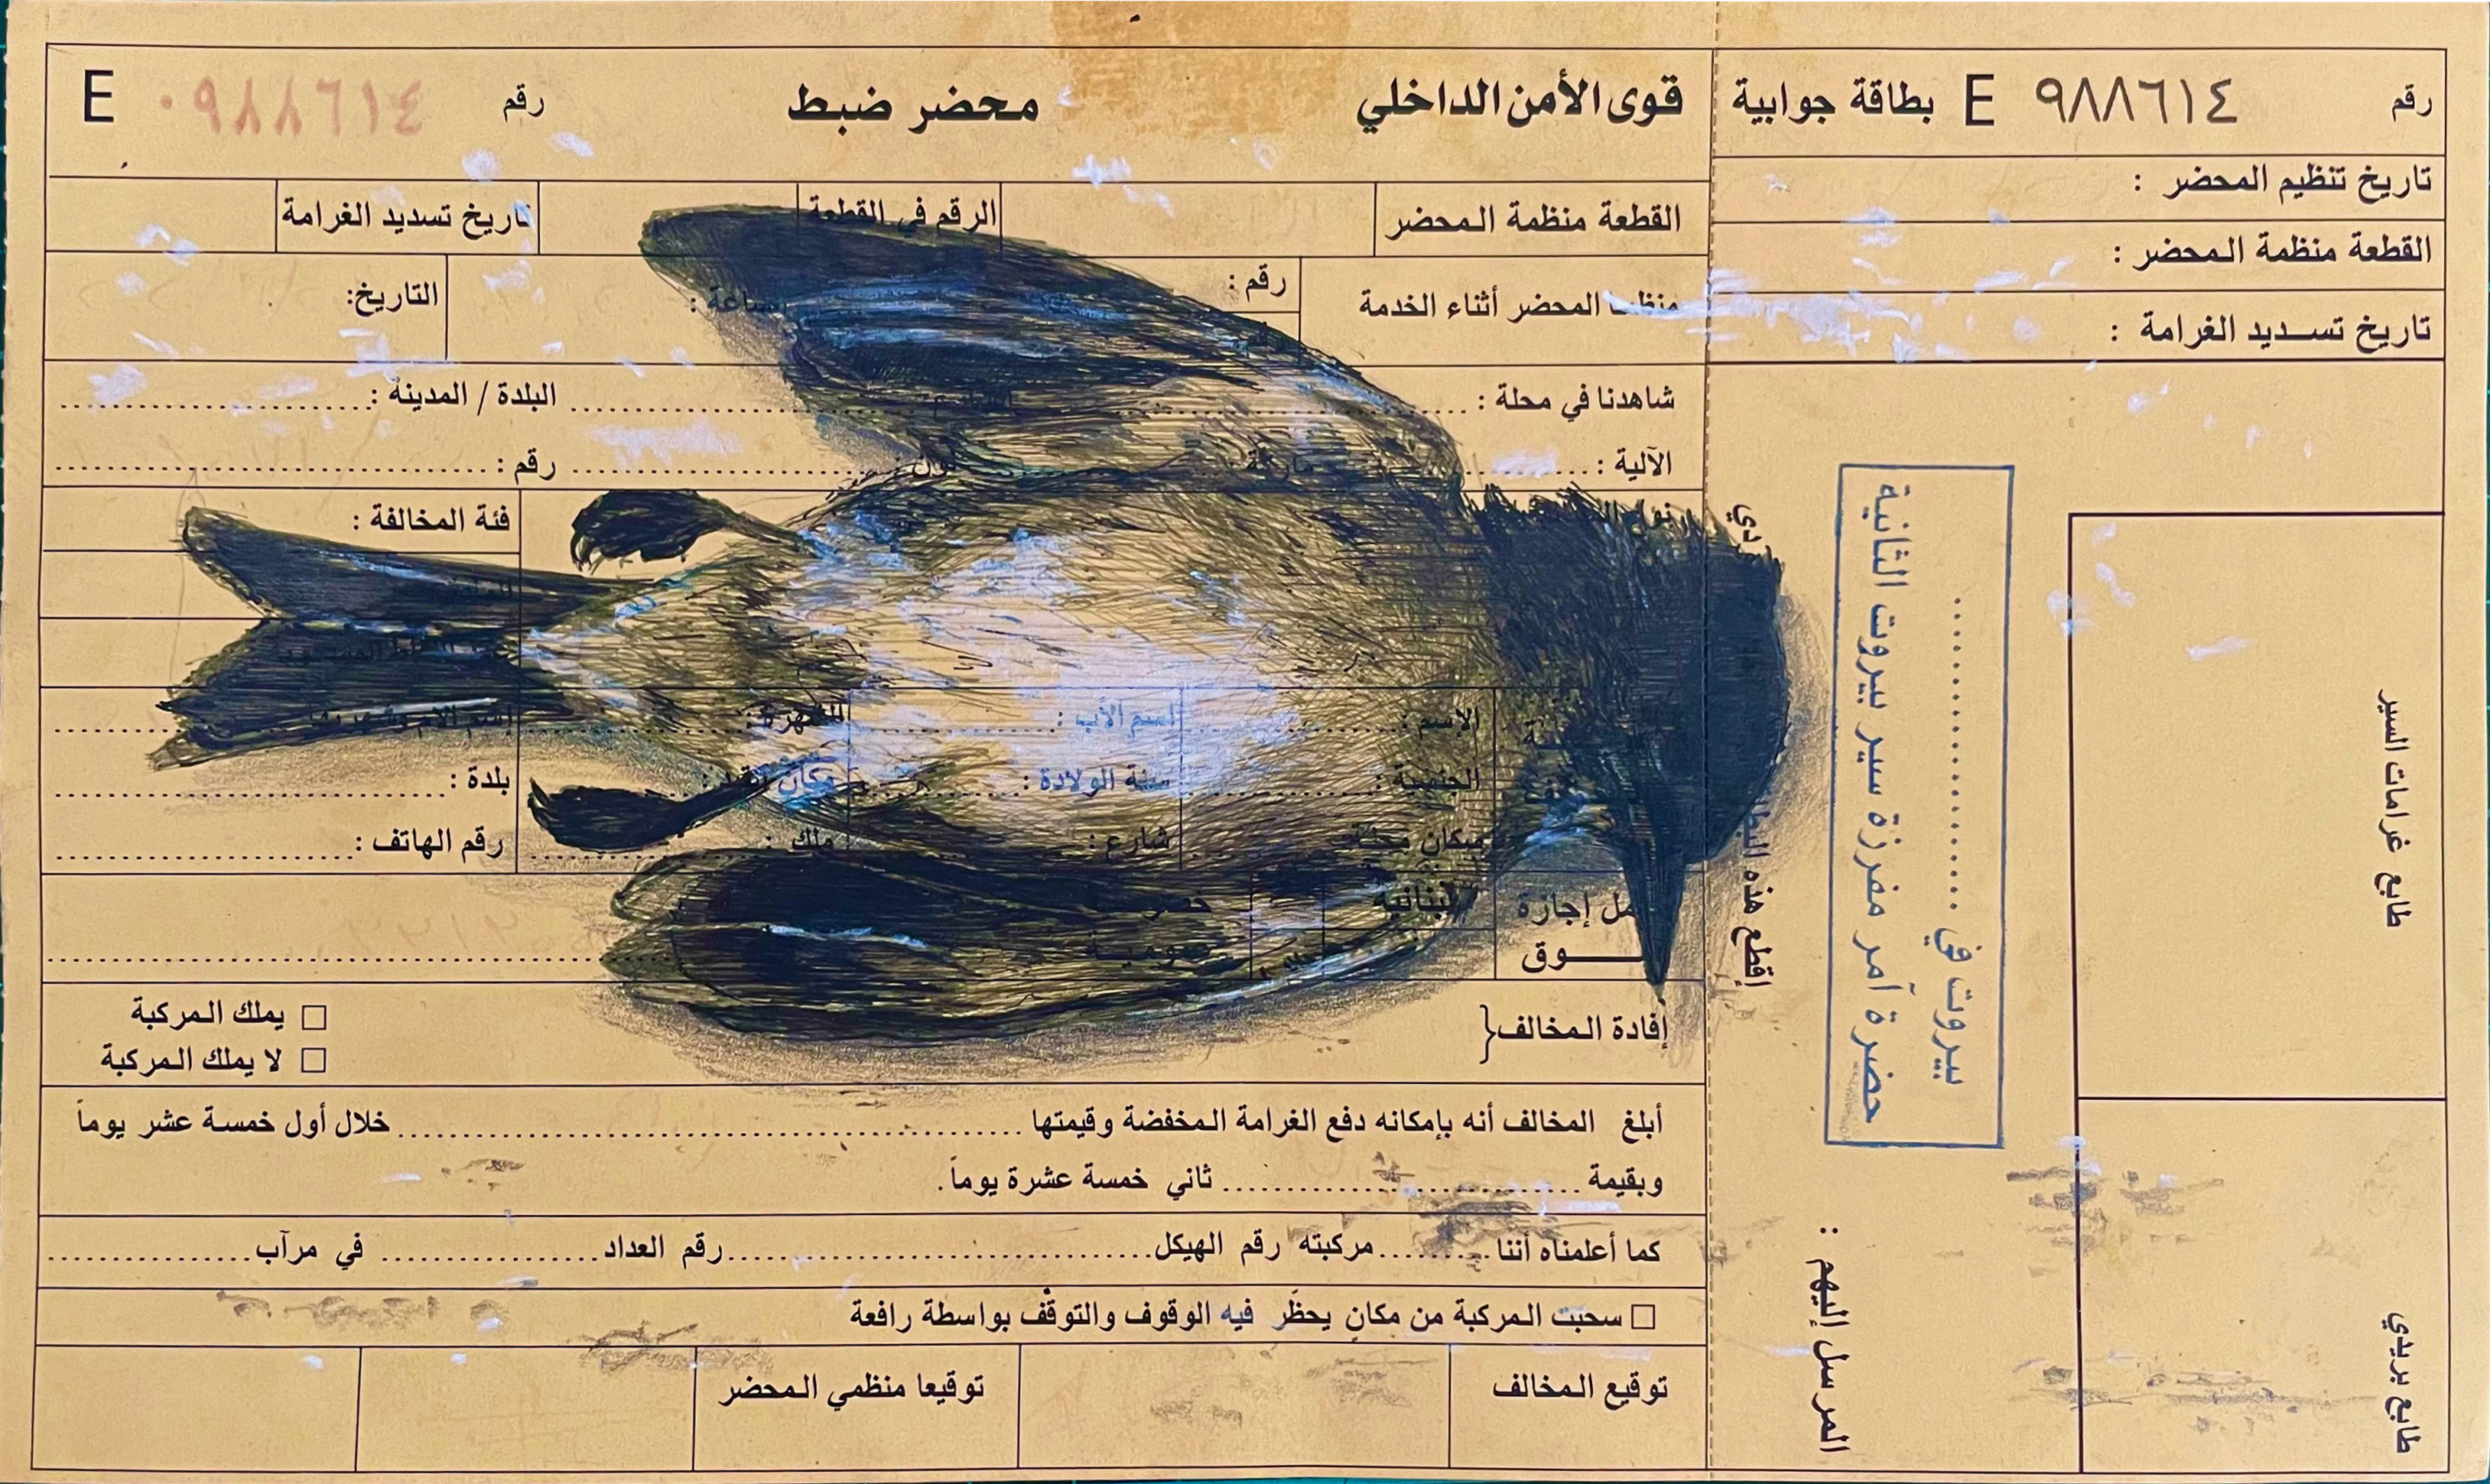 رقم E ٩٨٨٦١٤ بطاقة جوابية
تاريخ تنظيم المحضر :
القطعة منظمة المحضر :
تاريخ تسديد الغرامة :
طابع غرامات السير
حضرة آمر مفرزة سير بيروت الثانية
بيروت في ....................
المرسل إليهم :
طابع بريدي
إقطع هذه
قوى الأمن الداخلي محضر ضبط رقم ٠٩٨٨٦١٤ E
القطعة منظمة المحضر الرقم في القطعة تاريخ تسديد الغرامة
المحضر أثناء الخدمة رقم : ساعة : التاريخ:
شاهدنا في محلة : البلدة / المدينة :
الآلية : ماركة لون رقم :
فئة المخالفة :
الإسم : اسم الأب : الشهرة : إسم الأم وشهرتها
الجنسية : سنة الولادة : مكان القيد : بلدة :
مكان شارع : ملك : رقم الهاتف :
إجازة لبنانية خصوصي
سوق عمومية
إفادة المخالف{
□ يملك المركبة
□ لا يملك المركبة
أبلغ المخالف أنه بإمكانه دفع الغرامة المخفضة وقيمتها .................... خلال أول خمسة عشر يوماً
وبقيمة .................... ثاني خمسة عشرة يوماً.
كما أعلمناه أننا .......... مركبته رقم الهيكل .................... رقم العداد .......... في مرآب ..........
□ سحبت المركبة من مكان يحظر فيه الوقوف والتوقف بواسطة رافعة
توقيع المخالف توقيعا منظمي المحضر